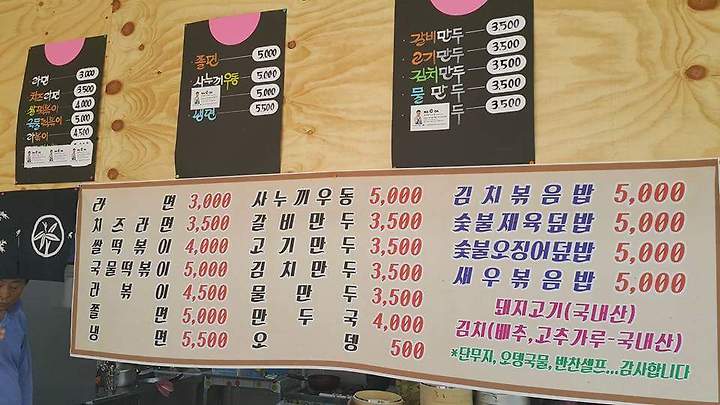 라면 3,000
치즈라면 3,500
쌀떡볶이 4,000
국물떡볶이 5,000
라볶이 4,500
쫄면 5,000
냉면 5,500
쫄면 5,000
사누끼우동 5,000
5,000
냉면 5,500
갈비만두 3,500
고기만두 3,500
김치만두 3,500
물만두 3,500
두
라면 3,000
치즈라면 3,500
쌀떡볶이 4,000
국물떡볶이 5,000
라볶이 4,500
쫄면 5,000
냉면 5,500
사누끼우동 5,000
갈비만두 3,500
고기만두 3,500
김치만두 3,500
물만두 3,500
만두국 4,000
오뎅 500
김치볶음밥 5,000
숯불제육덮밥 5,000
숯불오징어덮밥 5,000
새우볶음밥 5,000
돼지고기(국내산)
김치(배추,고추가루-국내산)
*단무지, 오뎅국물, 반찬셀프...감사합니다